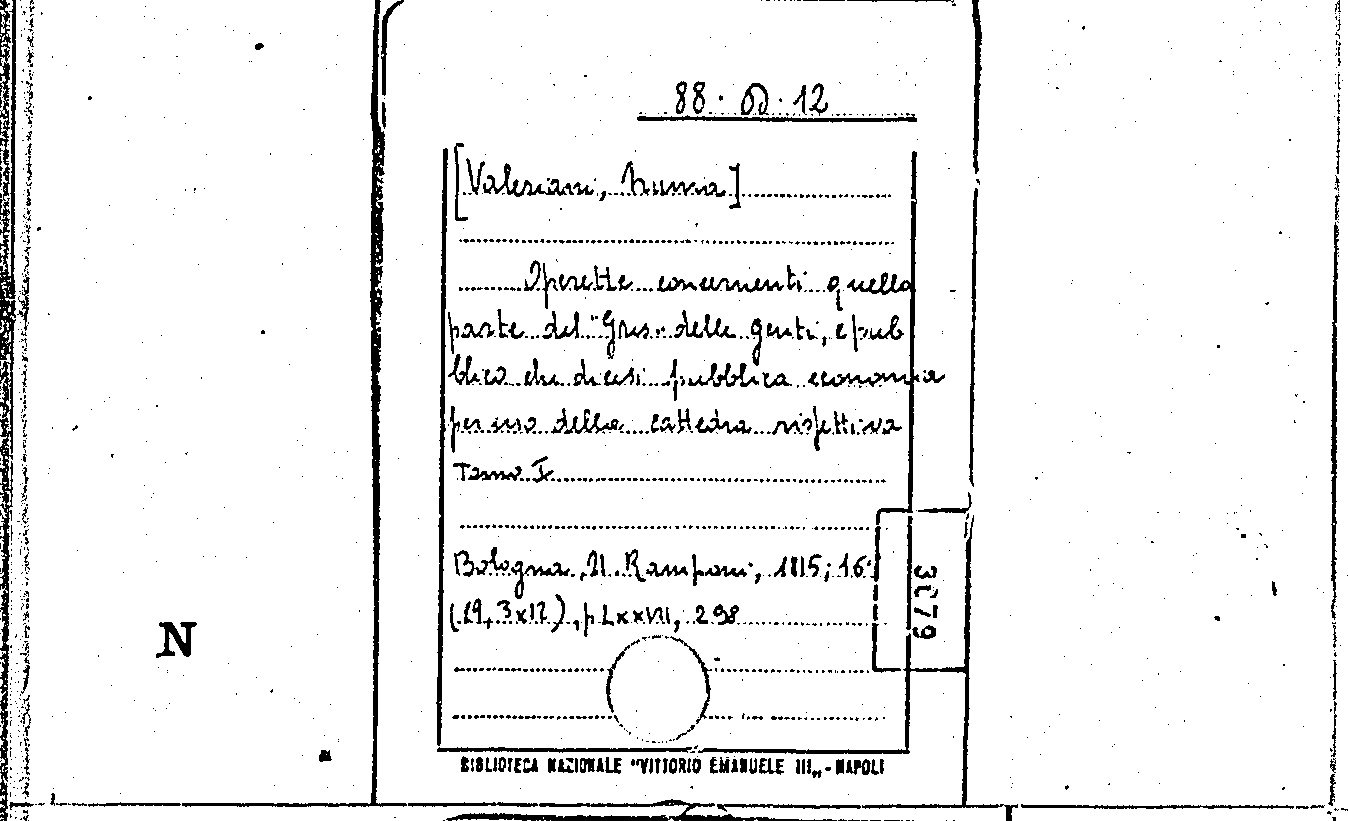 88 · D · 12
[Valeriani, Numa]
Operette concernenti quella
parte del "Gius" delle genti, e pub
blico che dicesi pubblica economia
per uso della cattedra rispettiva
Tomo I
Bologna, U. Ramponi, 1815; 16°
(19,3x12), p LXXVII, 298
3079
N
BIBLIOTECA NAZIONALE "VITTORIO EMANUELE III„ - NAPOLI